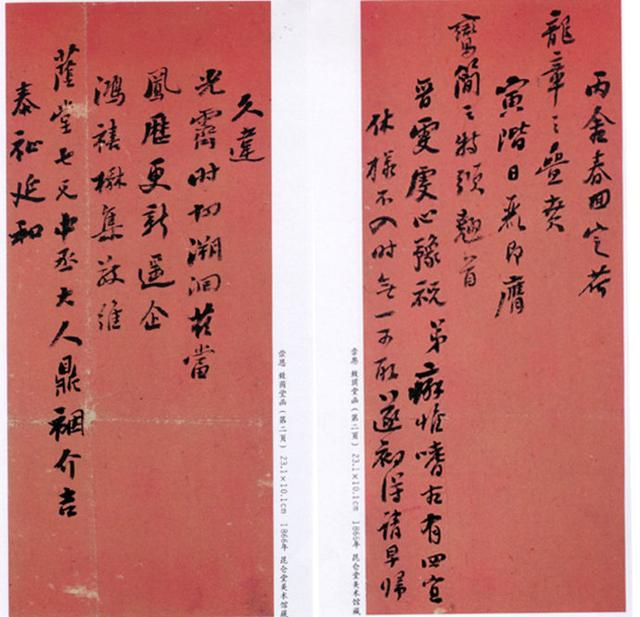 久違
光霽时切溯洄茲當
鳳曆更新遥企
鴻禧楙集敬維
蔭堂七兄中丞大人鼎祻介吉
泰祉延和
崇恩 致荫堂函（第二頁） 23.1×10.1cm 1866年 昆仑堂美术馆藏
丙舍春回定荷
龍章之疊賁
寅階日麗即膺
鸞簡之特頒翹首
晉雯虔心豫祝 弟癖惟嗜古有四宜
休様不入时無一可取遂初得請早歸
崇恩 致荫堂函（第二頁） 23.1×10.1cm 1866年 昆仑堂美术馆藏